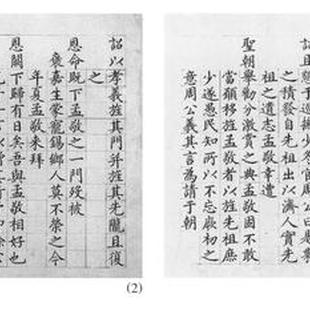 之積發自先祖出以濟人實先
祖之遺志孟敬幸遭
聖朝舉勸分激賞之典孟敬固不敢
當願移旌孟敬者以旌先祖庶
少遂愚民知所以不忘厥初之
意周公義其言為請于朝
詔以孝義旌其門并旌其先隴且復
之
恩命既下孟敬之一門歿被
褒嘉生蒙寵錫鄉人莫不榮之今
年夏孟敬來拜
恩闕下歸有日矣吾與孟敬相好也
(2)